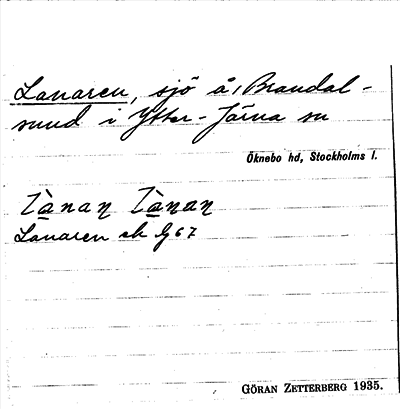 Lanaren, sjö å, Brandal-
sund i Ytter-Järna sn
Öknebo hd, Stockholms l.
Lanaren ek G 67
GÖRAN ZETTERBERG 1935.